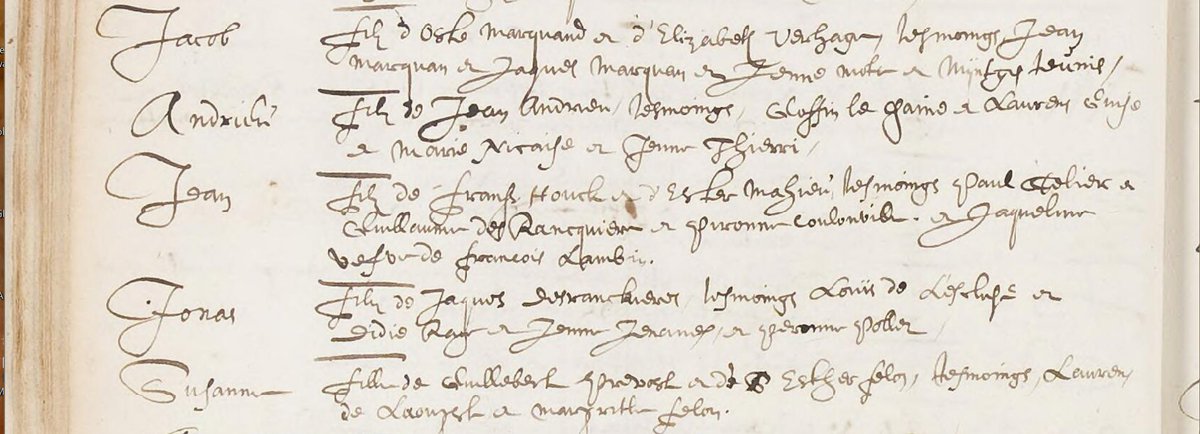 Jacob filz d'Oste Marquand et d'Elizabeth Verhage, tesmoings, Jean
Marquan et Jaques Marquan et Jenne Mote et Mijntgis teunis,
Andrieu filz de Jean Andrieu, tesmoings, Gloffin le et Lauren
et Marie Nicaise et Jenne Thierri,
Jean filz de Frans Houck et d'Ester Mahieu, tesmoings Paul et
Guillaume des Rancquiere et Pironne Coulonbile. et Jaqueline
vesve de francois Lambin.
Jonas filz de Jaques desranckieres, tesmoings Louis de L'escluse et
Didie et Jenne et Peronne Pollet
Susanne fille de Guillebert Prevost et de Esther felon, tesmoings, Lauren,
de et Margritte felon.